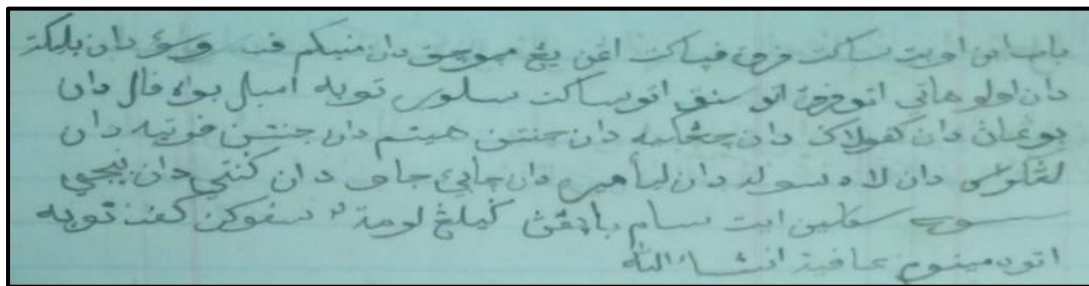 باب اين اوبت ساكت فرق فياكت اغن يغ مبوجق دان منيكم فد وسؤ دان بليكت
دان اولو هاتي اتو فرق اتو سنق اتو ساكت سلوس توبه امبل بواه فال دان
بوغان دان كفولاك دان چڠكيه دان جنتن هيتم دان جنتن فوتيه دان
لڠكوس دان لاد سوله دان ليأ ميره دان چابي جاو دان كنتي دان بيجي
سوي سكلين ايت سام باڽقڽ ݢيليڠ لومت٢ سفوكن كفد توبه
اتو دمينوم عافية انشاء الله